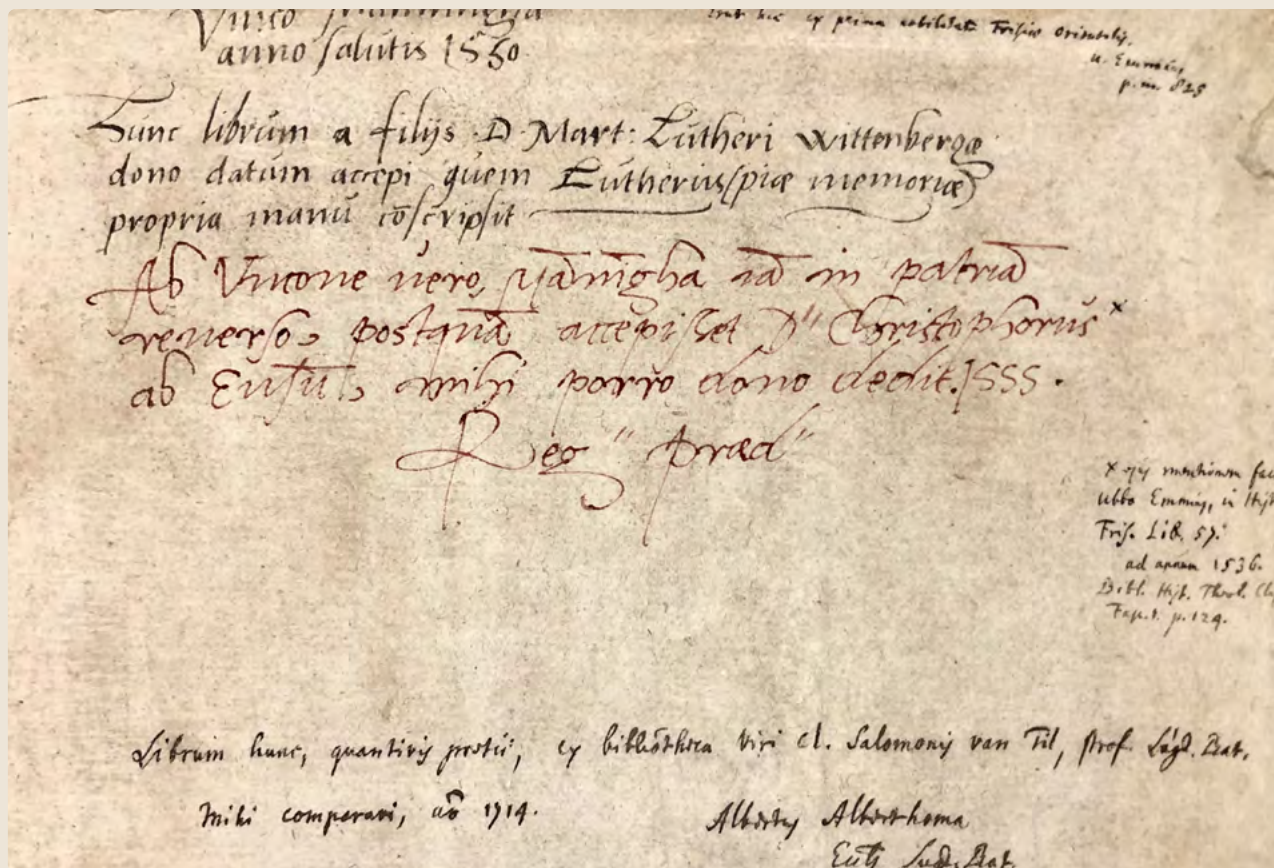 anno salutis 1550
ex prima nobilitate Frisiæ orientalis,
u. Emmius,
p. m. 825
Hunc librum a filijs D. Mart: Lutheri Wittenbergæ
dono datum accepi quem Lutherus (piæ memoriæ)
propria manu cõscripsit
Ab Unicone vero, Mãnĩgha iã in patriã
reverso, postquã accepisset Dn Christophorus x
ab Eusũ, mihi porro dono dedit. 1555.
Reg" præd"
x cujus mentionem fac
Ubbo Emmius, in Hist
Fris. Lib. 57.
ad annum 1536.
Bibl. Hist. Theol. Cl
Fasc. 1. p. 124.
Librum hunc, quantivis pretii, ex bibliotheca viri cl. Salomonis van Til, Prof. Lugd. Bat.
mihi comparavi, ao 1714.
Albertus Alberthoma
Lugd. Bat.